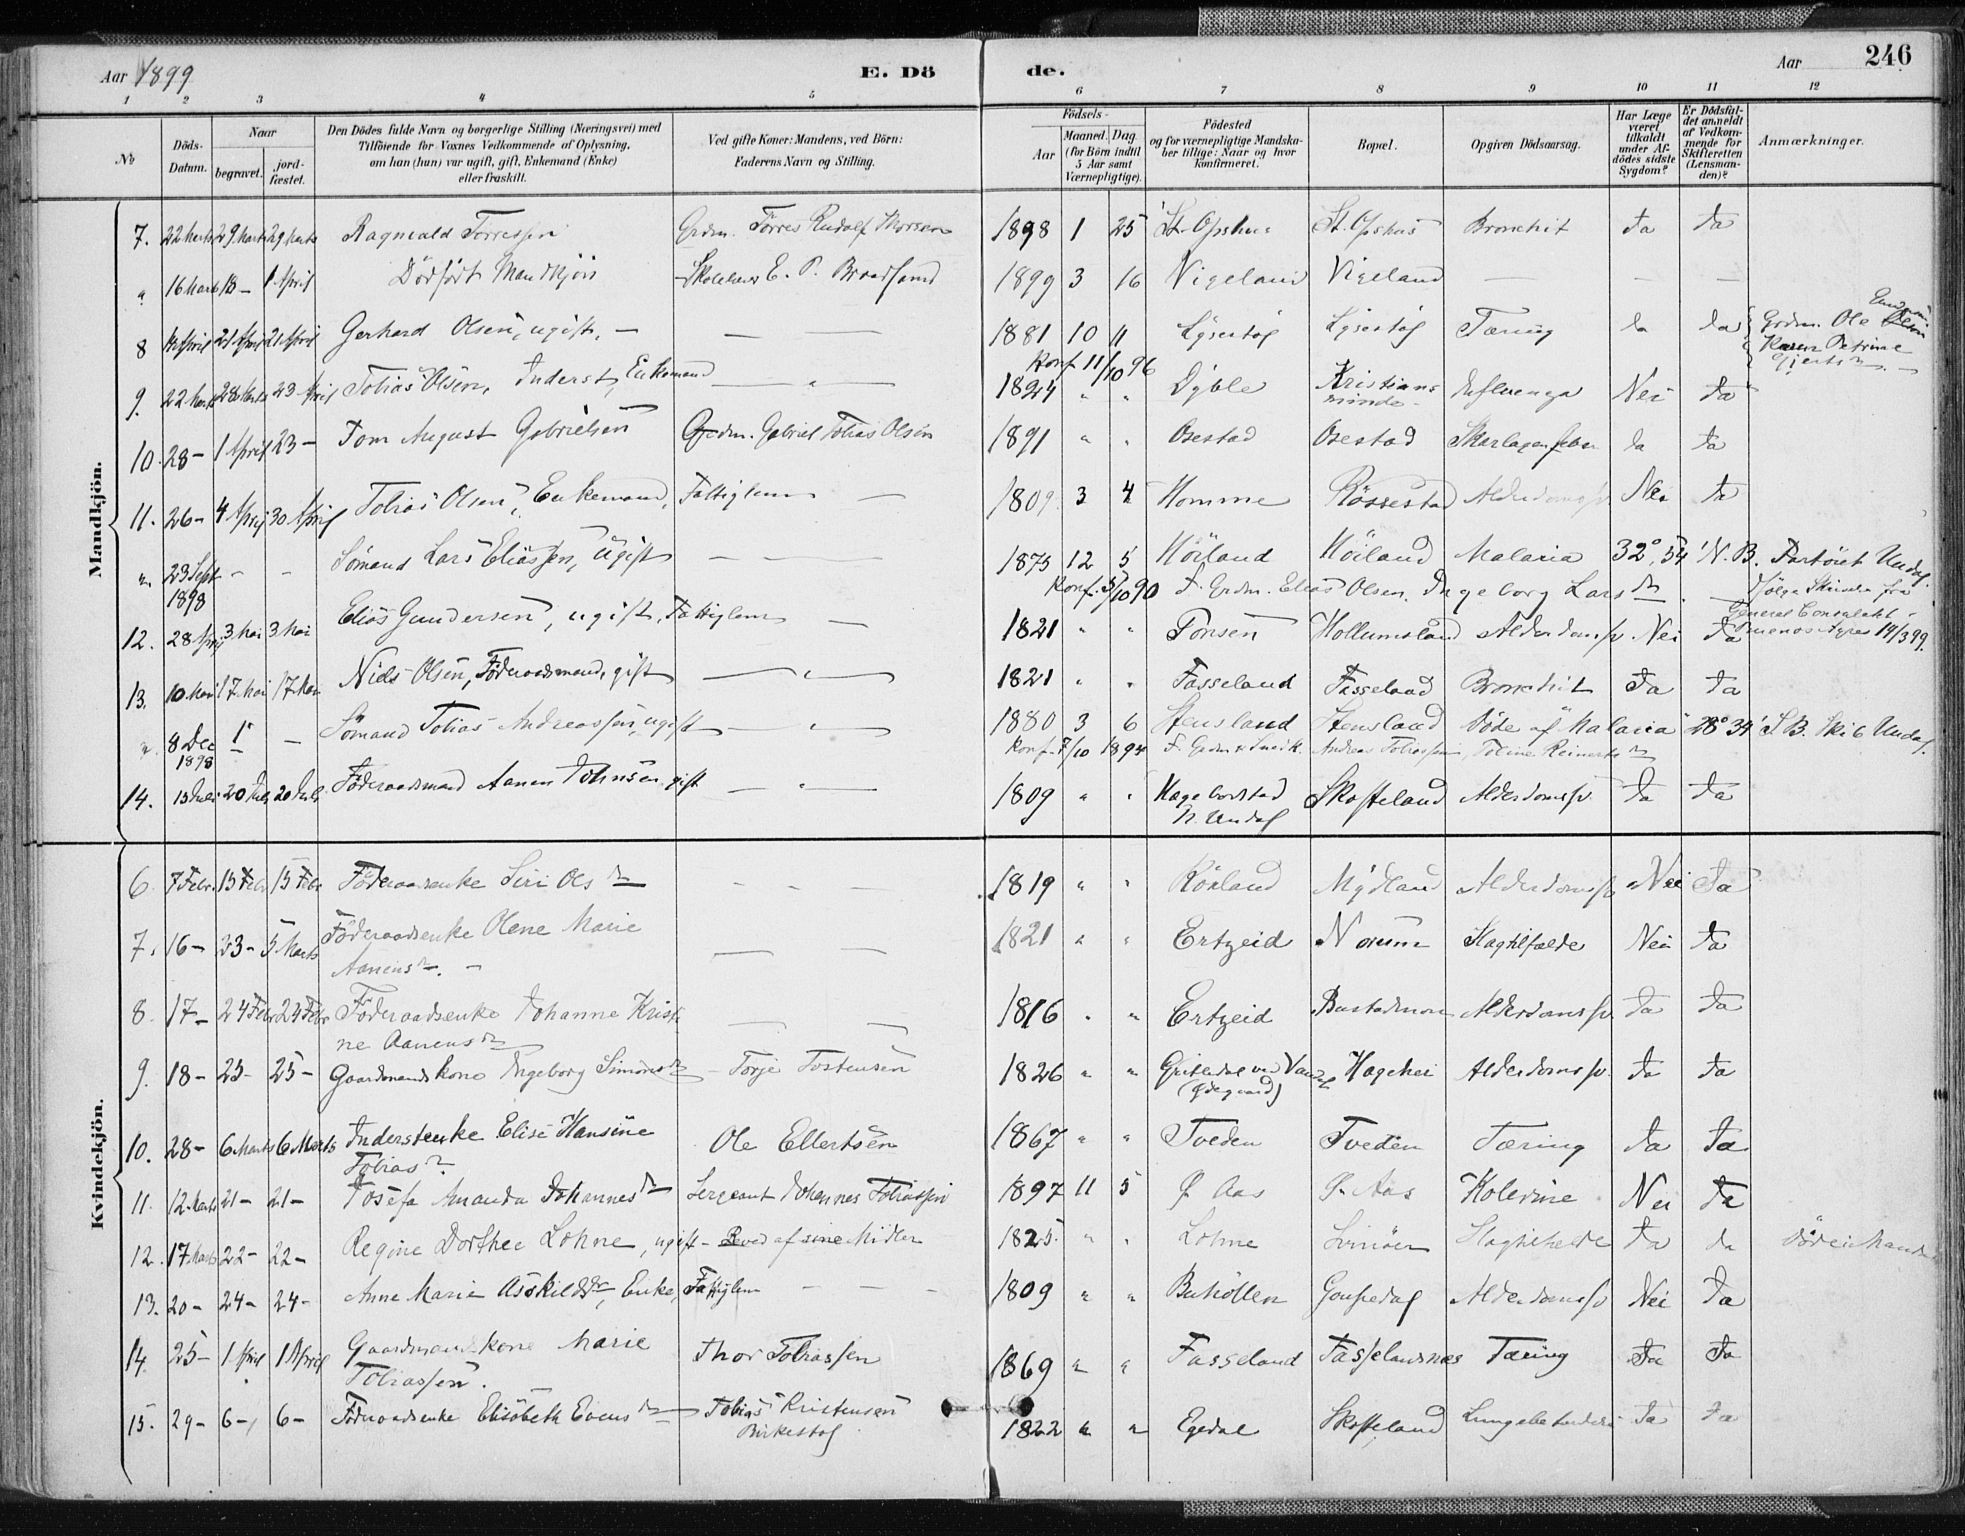 Aar 1899 E. Dö de. Aar 246
1 2 3 4 5 6 7 8 9 10 11 12
No
Döds-Datum.
Naar
begravet.
jordfæstet.
Den Dödes fulde Navn og borgerlige Stilling (Næringsvei) med
Tilföiende for Voxnes Vedkommende af Oplysning,
om han (hun) var ugift, gift, Enkemand (Enke)
eller fraskilt.
Ved gifte Koner: Mandens, ved Börn:
Faderens Navn og Stilling.
Födsels-
Aar
Maaned. Dag.
(for Börn indtil
5 Aar samt
Værnepligtige).
Födested
og for værnepligtige Mandskaber tillige: Naar og hvor
konfirmeret.
Bopæl.
Opgiven Dödsaarsag.
Har Læge
været
tilkaldt
under Afdödes sidste
Sygdom?
Er Dödsfaldet anmeldt
af Vedkommende for
Skifteretten
(Lensmanden)?
Anmærkninger.
Mandkjön.
7. 22 Marts 29 Marts 29 Marts Ragnvald Torressen Grdm. Törres Rudolf 1898 1 25 St. Opshus St. Opshus Bronchit Ja Ja
" 16 Marts 18 - 1 April Dödfödt Mandkjön E. P. Braadland 1899 3 16 Vigeland Vigeland — — —
8 April 21 April 21 April Gerhard Olsen, ugift, — — — 1881 10 11 Lÿsestöl Lÿsestöl Tæring Ja Ja Grdm. Ole
Konf 11/10 96 Karen Petrine
9. 22 Marts 28 Marts 23 April Tobias Olsen, Inderst, Enkemand — " — 1824 " " Dÿble Kristiansminde Influenza Nei Ja
10. 28 - 1 April 23 - Tom August Gabrielsen Grdm. Gabriel Tobias Olsen 1891 " " Osestad Osestad Skarlagensfeber Ja Ja
11. 26 - 4 April 30 April Tobias Olsen, Enkemand, Fattiglem — 1809 3 4 Homme Rössestad Alderdomssv. Nei Ja
". 23 Sept 1898 - - Sömand Lars Eliassen, ugift — — — 1875 12 5 Höiland Höiland Malaria 32°, 54' N. B. Fartöiet Undal.
Konf. 5/10 90 F. Grdm. Elias Olsen, Ingeborg Larsdr. — ifölge Skrivelse fra
General Consulatet
Buenos Ayres 14/3 99.
12. 28 April 3 Mai 3 Mai Elias Gundersen, ugift, Fattiglem — 1821 " " Tonsen Hollumsland Alderdomssv. Nei Ja
13. 10 Mai 17 Mai 17 Mai Niels Olsen, Föderaadsmand, gift — " — 1821 " " Fasseland Fasseland Bronchit Ja Ja
". 8 Dec 1898 — Sömand Tobias Andreassen, ugift — " — 1880 3 6 Stensland Stensland Döde af Malaria 28° 34' S. B. Skib Undal.
Konf. 7/10 1894 F. Grdm. Andreas Tobiassen, Tobine Reinertsdr
14. 13 Juli 20 Juli 20 Juli Föderaadsmand Aanen Johnsen gift — " — 1809 " " Hægebostad
N. Undal Skoffeland Alderdomssv. Ja Ja
Kvindekjön.
6. 7 Febr. 15 Febr 15 Febr Föderaadsenke Siri Olsdr - - - 1819 " " Röiland Mÿdland Alderdomssv Nei Ja
7. 16 - 23 - 5 Marts Föderaadsenke Olene Marie
Aanensdr. — — — 1821 " " Ertzeid Norum Slagtilfælde Nei Ja
8. 17 - 24 Febr 24 Febr Föderaadsenke Johanne Kristine
Aanensdr — — 1816 " " Ertzeid Alderdomssv. Ja Ja
9. 18 - 25 - 25 - Gaardmandskone Ingeborg Simonsdr - Torje Tostensen 1826 " " Grisedal ved Vandal
(Ødegaard) Hagehei Alderdomssv. Ja Ja
10. 28 - 6 Marts 6 Marts Inderstenke Elise Hansine
Tobiasdr. Ole Ellertsen 1867 " " Tveden Tveden Tæring Ja Ja
11. 12 Marts 21 - 21 - Josefa Amanda Johannesdr Sergeant Johannes Tobiassen 1897 11 5 Ø. Aas Ø. Aas Kolerine Nei Ja
12. 17 Marts 22 - 22 - Regine Dorthee Lohne, ugift - Leved af sine Midler 1825 " " Lohne Svinöer Slagtilfælde Ja Ja Döde i Mandal
13. 20 - 24 - 24 - Anne Marie Asskildsdr, Enke, Fattiglem - - - 1809 " " Buhöllen Goupedal Alderdomssv Nei Ja
14. 25 - 1 April 1 April Gaardmandskone Marie
Tobiassen. Thor Tobiassen 1869 " " Fasseland Fasselandsnes Tæring Ja Ja
15. 29 - 6 - 6 - Föderaadsenke Elisabeth Evensdr — Tobias Kristensen
Birkestöl 1822 " " Egedal Skoffeland Lungebetændelse Ja Ja